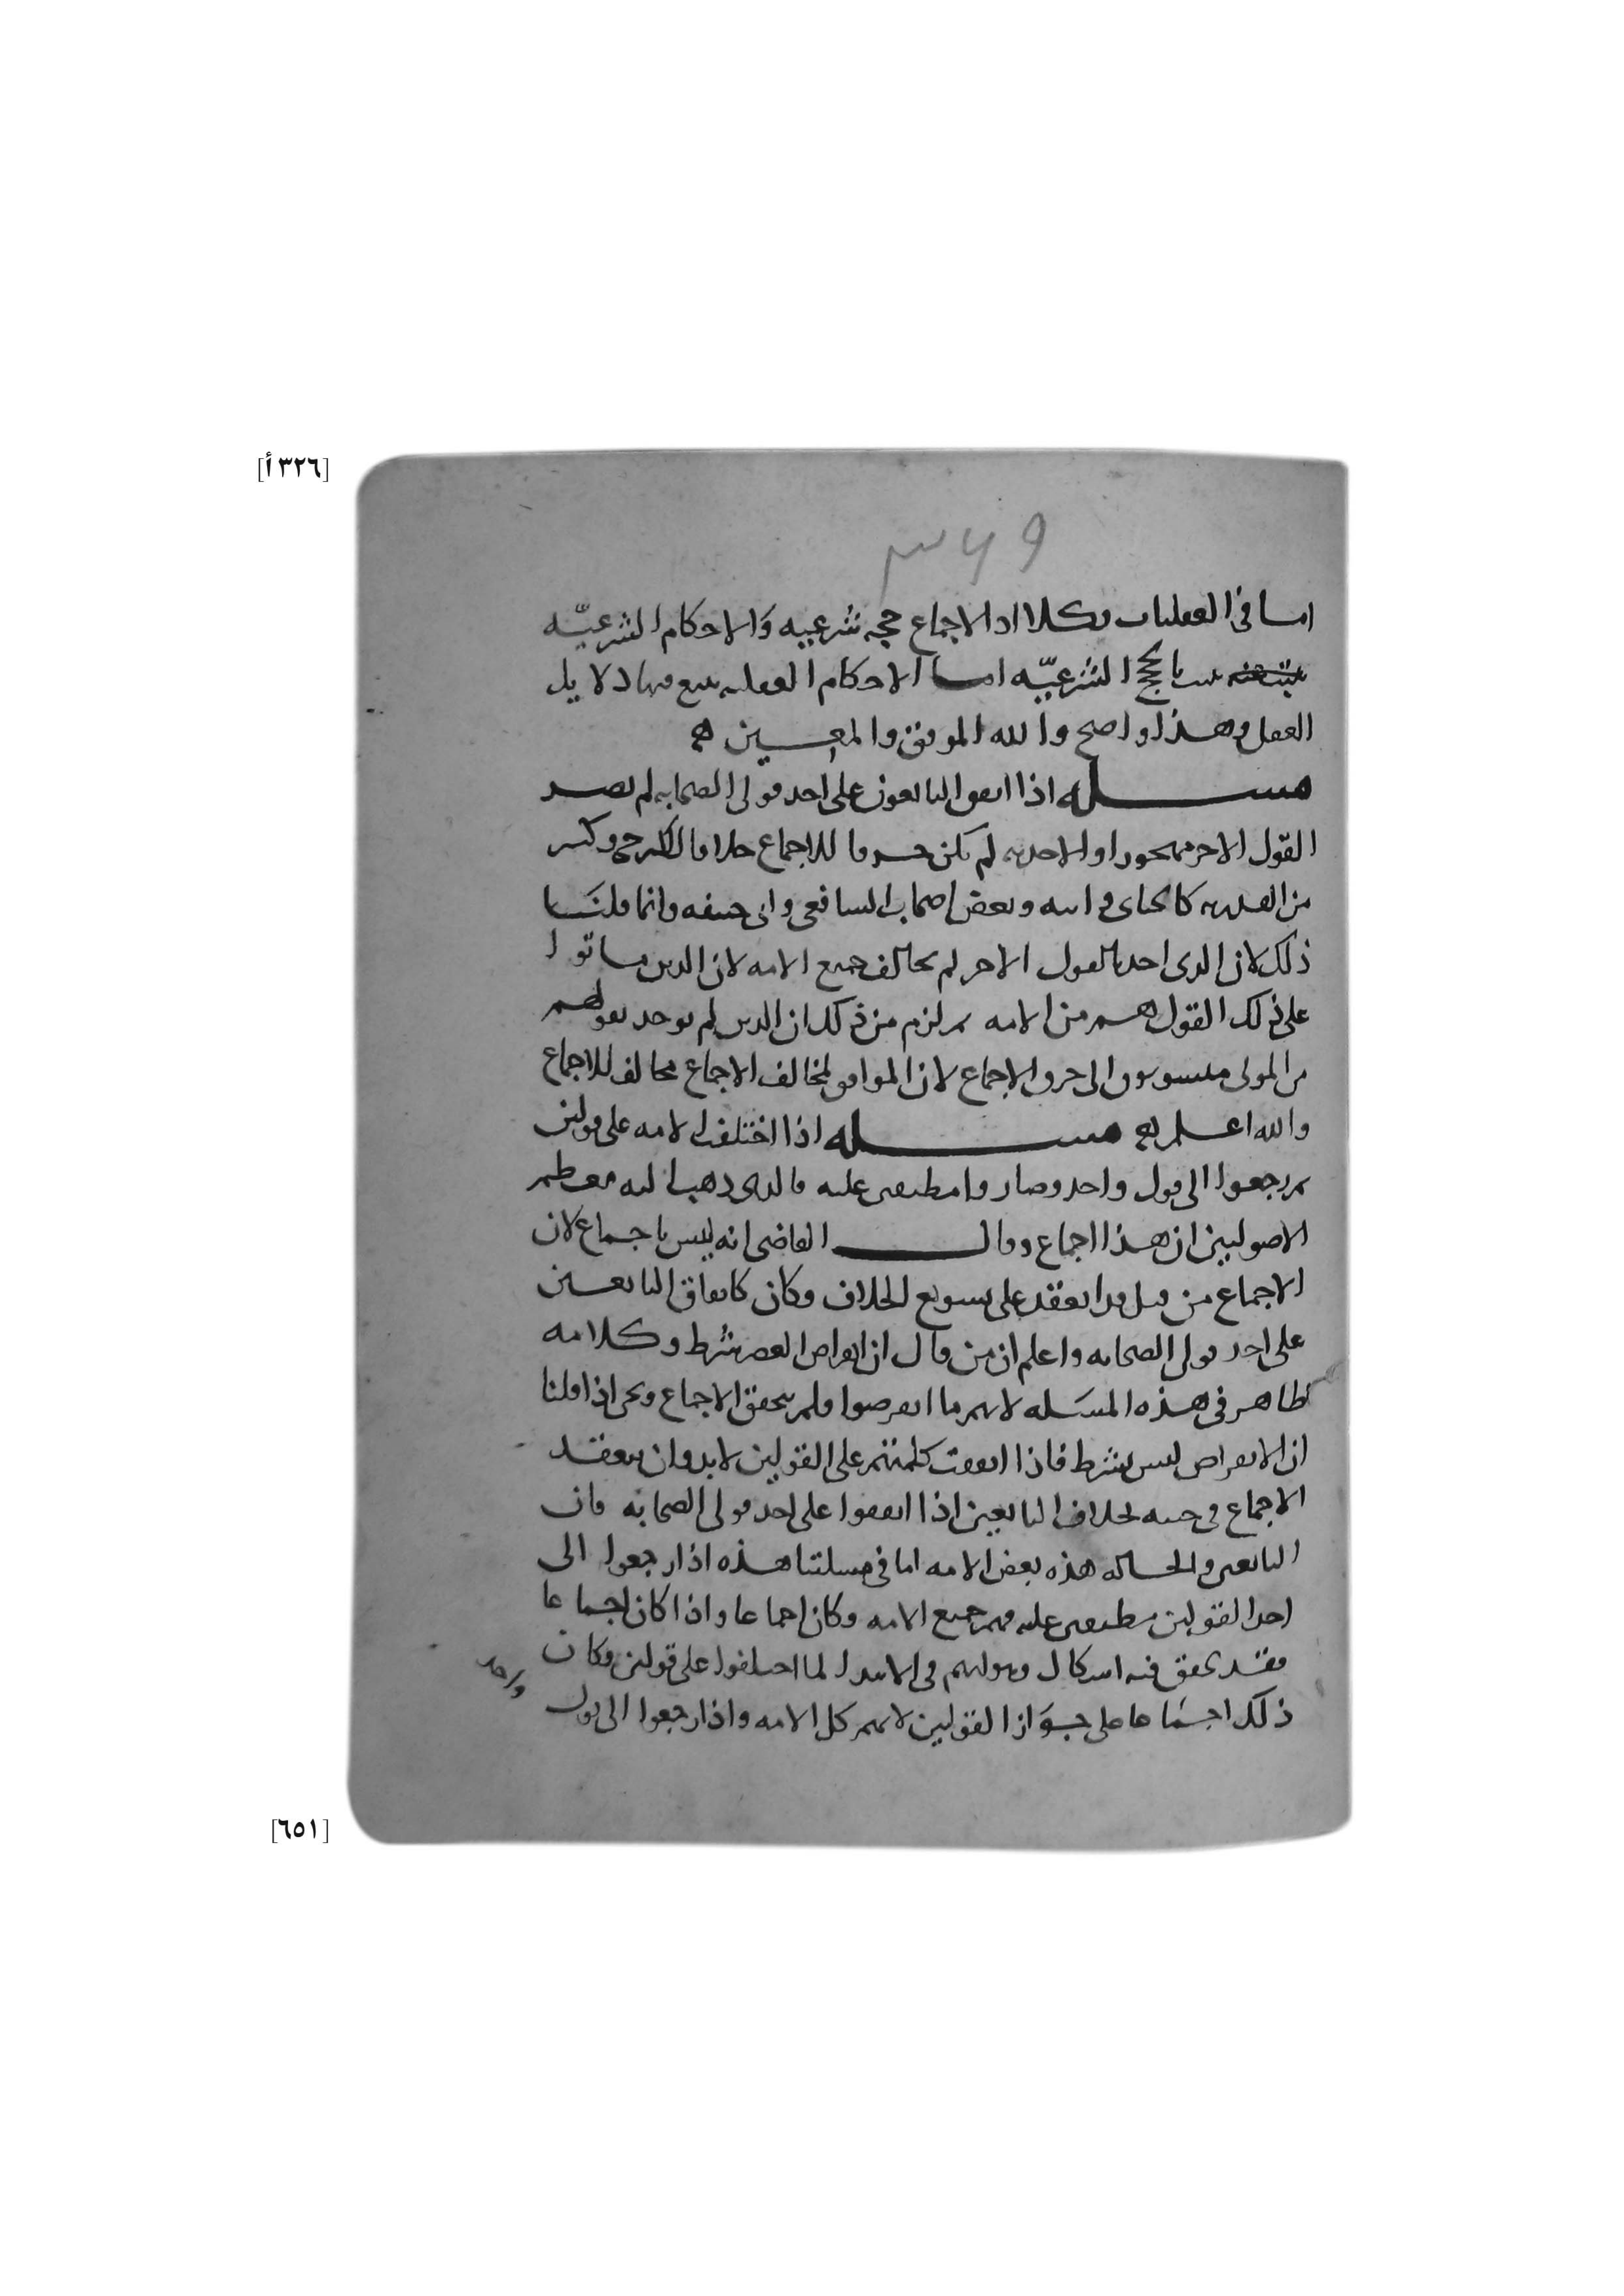 [٣٢٦ أ]
٣٦٩
اما في العقليات فكلا اذ الاجماع حجه شرعيه وَالاحكام الشرعيّه
تثبت بالحجج الشرعيّه اما الاحكام العقليه فيتبع فيها دلايل
العقل وهذا واضح والله الموفق والمعين
مسله اذا اتفق التابعون على احد قولي الصحابه لم يصر
القول الاخر مهجورا والاخذ به لم يكن خرقا للاجماع خلافا للكرخي وكثير
من القدريه كالجبائي وابنه وبعض اصحاب الشافعي وابي حنيفه وانما قلنَا
ذلك لان الذي اخذ بالقول الاخر لم يخالف جميع الامه لان الذين ماتوا
على ذلك القول هم من الامه ثم لزم من ذلك ان الذين لم يوخد بقولهم
من الموتى منسوبون الى خرق الاجماع لان الموافق لمخالف الاجماع مخالف للاجماع
والله اعلم مسله اذا اختلفت الامه على قولين
ثم رجعوا الى قول واحد وصاروا مطبقين عليه فالذي ذهب اليه معظم
الاصوليين ان هذا اجماع وقال القاضي انه ليس باجماع لان
الاجماع من قبل قد انعقد على تسويغ الخلاف وكان كاتفاق التابعين
على احد قولي الصحابه واعلم ان من قال ان انقراض العصر شرط وكلامه
ظاهر في هذه المسَله لانهم ما انقرضوا فلم يتحقق الاجماع ونحن اذا قلنا
ان الانقراض ليس بشرط فاذا اتفقت كلمتهم على القولين لابد وان ينعقد
الاجماع في حقه بخلاف التابعين اذا اتفقوا على احد قولي الصحابه فان
التابعين والحاله هذه بعض الامه اما في مسلتنا هذه اذا رجعوا الى
احد القولين مطبقين عليه فهم جميع الامه وكان اجماعا واذا كان اجماعا
فقد تحقق فيه اشكال وهو انهم في الابتدا لما اختلفوا على قولين فكان
ذلك اجمَاعا على جوَاز القولين لانهم كل الامه واذا رجعوا الى قول
واحد
[٦٥١]